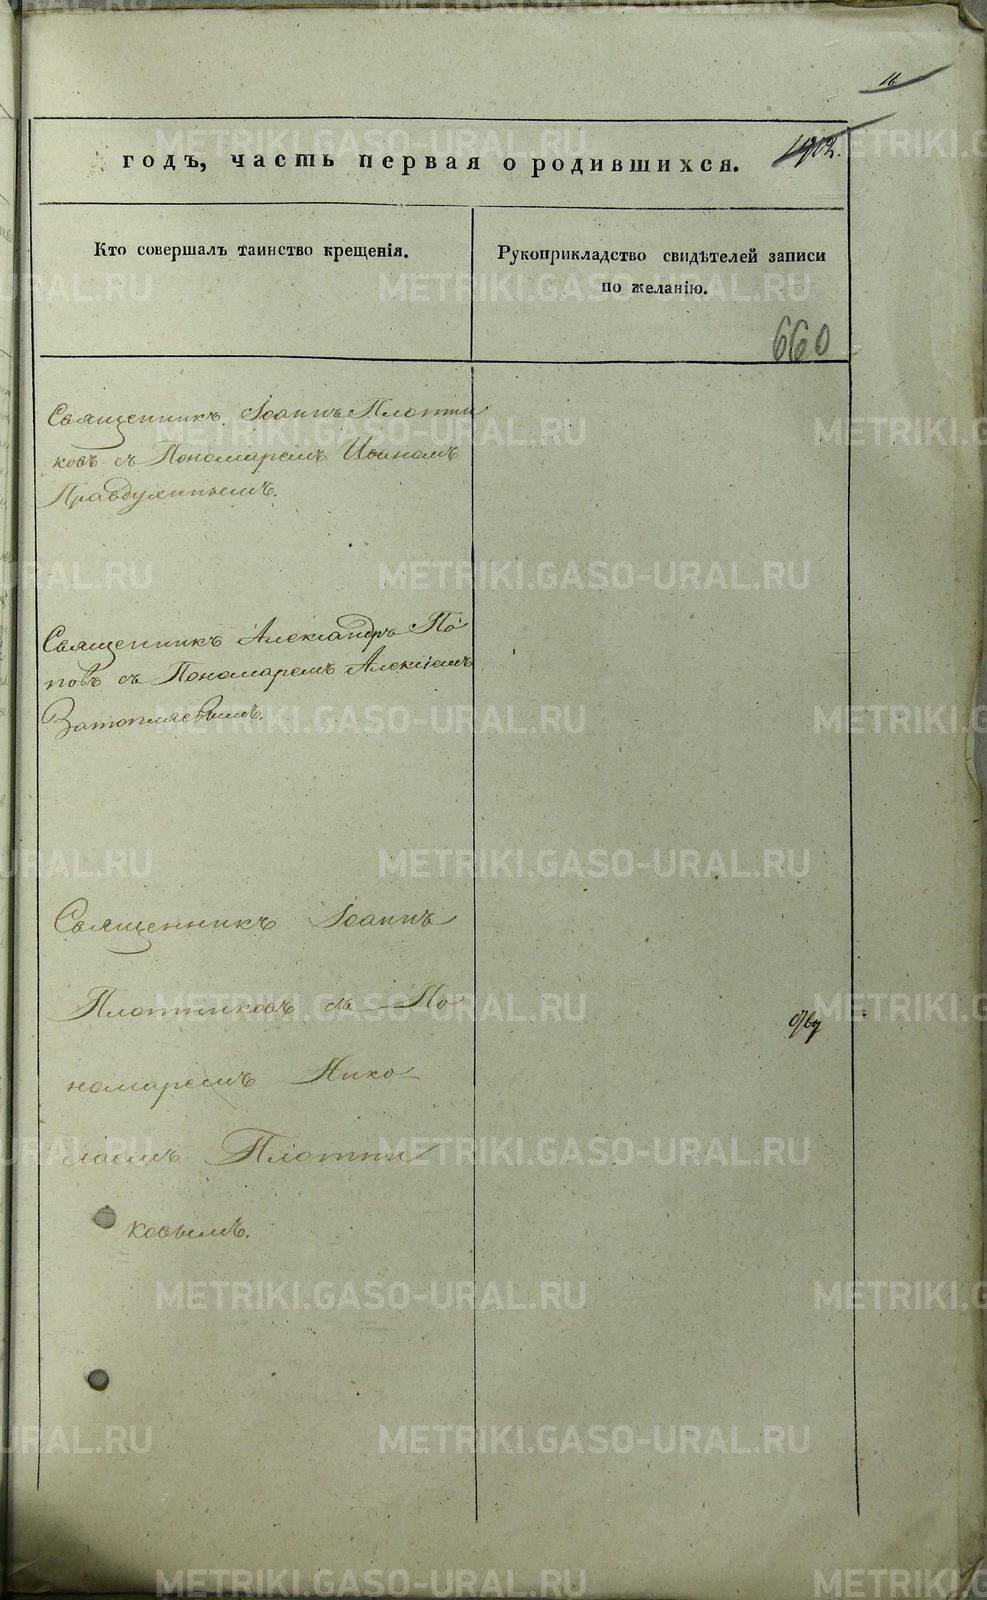 16
годъ, часть первая о родившихся.
1902.
Кто совершалъ таинство крещенія.
Рукоприкладство свидѣтелей записи
по желанію.
660
Священникъ Іоаннъ Плотни
ковъ съ Пономаремъ Иоаномъ
Правдухинымъ.
Священникъ Александръ По
повъ съ Пономаремъ Алексіемъ
Затопляевымъ.
Священникъ Іоаннъ
Плотниковъ съ По
номаремъ Нико
лаемъ Плотни
ковымъ.
METRIKI.GASO-URAL.RU